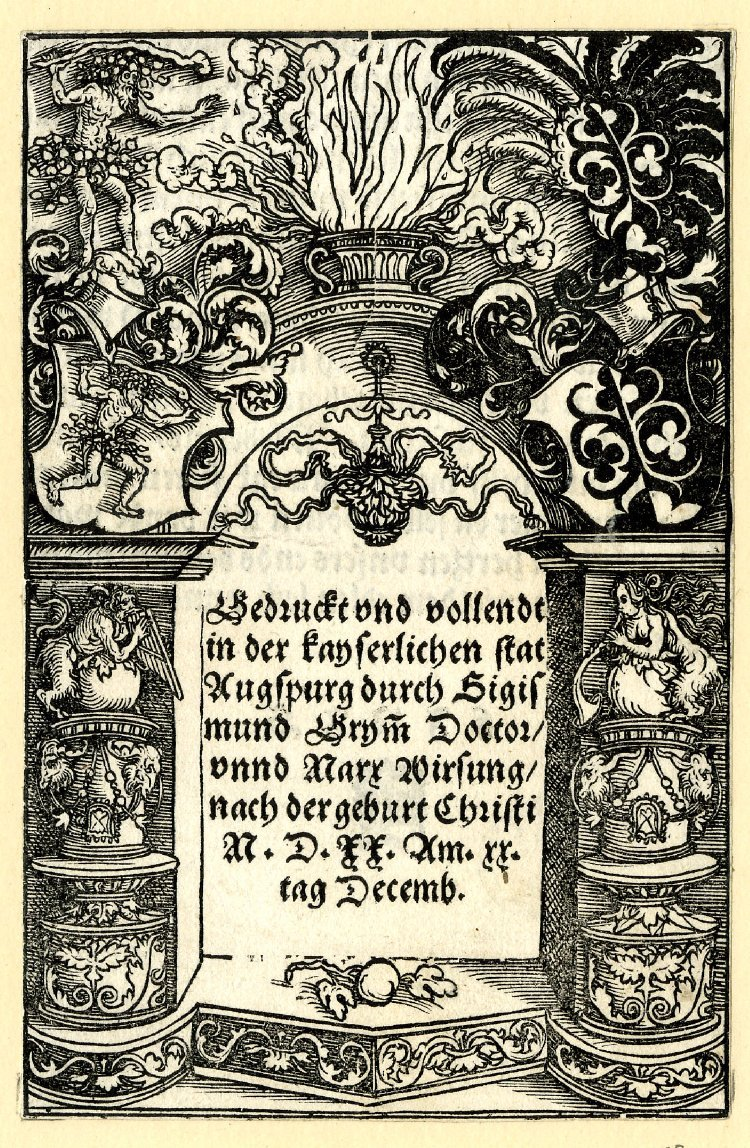 Gedruckt vnd vollendt
in der kayserlichen stat
Augspurg durch Sigis
mund Grym̄ Doctor/
vnnd Marx Wirsung/
nach der geburt Christi
M. D. XX. Am. xx.
tag Decemb.